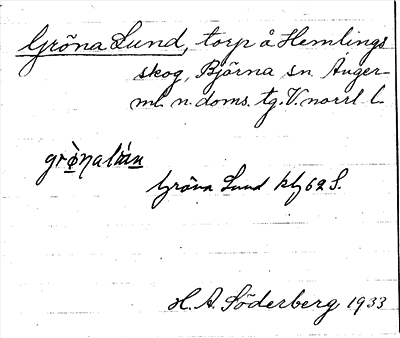 Gröna Lund, torp å Hemlings
skog, Björna sn Ånger-
ml. n. doms. tg. V. norrl l.
Gröna Lund kbg 62 S.
H. A. Söderberg 1933